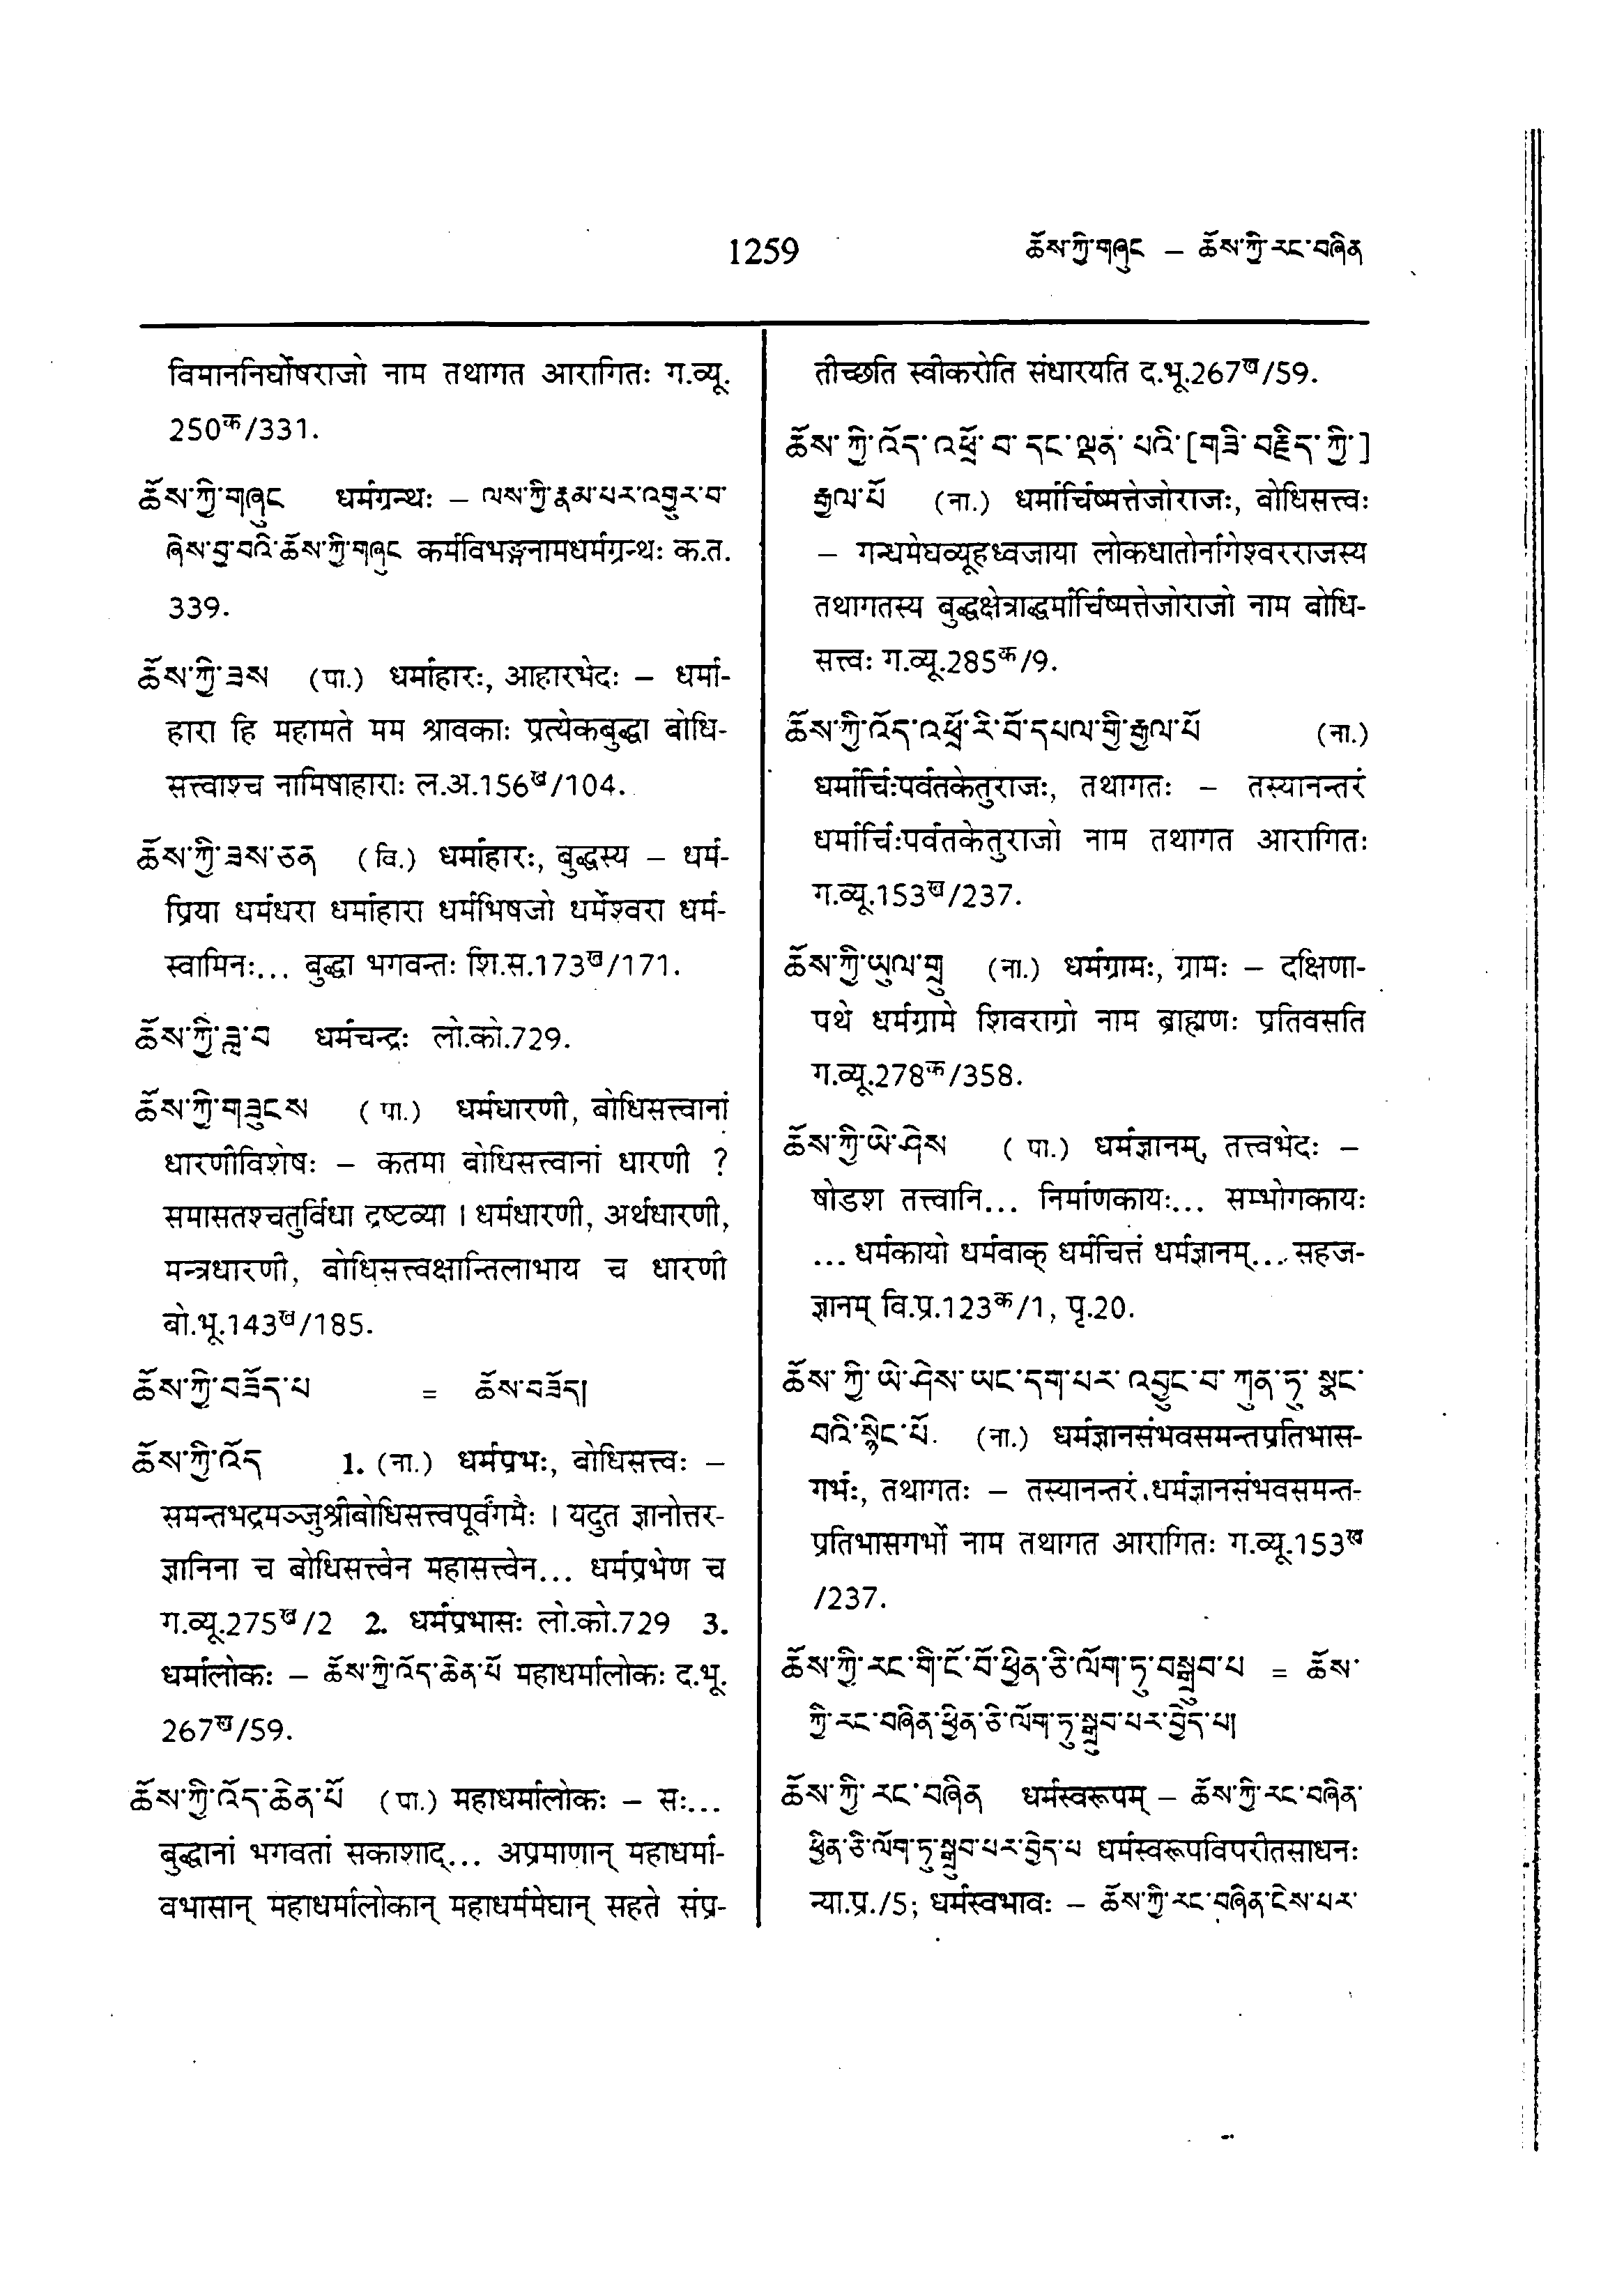 1259
ཆོས་ཀྱི་གཞུང – ཆོས་ཀྱི་རང་བཞིན
विमाननिर्घोषराजो नाम तथागत आरागितः ग.व्यू.
250क/331.
ཆོས་ཀྱི་གཞུང धर्मग्रन्थः – ལས་ཀྱི་རྣམ་པར་འགྱུར་བ་
ཞེས་བྱ་བའི་ཆོས་ཀྱི་གཞུང कर्मविभङ्गनामधर्मग्रन्थः क.त.
339.
ཆོས་ཀྱི་ཟས (पा.) धर्माहारः, आहारभेदः – धर्मा-
हारा हि महामते मम श्रावकाः प्रत्येकबुद्धा बोधि-
सत्त्वाश्च नामिषाहाराः ल.अ.156ख/104.
ཆོས་ཀྱི་ཟས་ཅན (वि.) धर्माहारः, बुद्धस्य – धर्म-
प्रिया धर्मधरा धर्माहारा धर्मभिषजो धर्मेश्वरा धर्म-
स्वामिनः... बुद्धा भगवन्तः शि.स.173ख/171.
ཆོས་ཀྱི་ཟླ་བ धर्मचन्द्रः लो.को.729.
ཆོས་ཀྱི་གཟུངས (पा.) धर्मधारणी, बोधिसत्त्वानां
धारणीविशेषः – कतमा बोधिसत्त्वानां धारणी ?
समासतश्चतुर्विधा द्रष्टव्या । धर्मधारणी, अर्थधारणी,
मन्त्रधारणी, बोधिसत्त्वक्षान्तिलाभाय च धारणी
बो.भू.143ख/185.
ཆོས་ཀྱི་བཟོད་པ = ཆོས་བཟོད།
ཆོས་ཀྱི་འོད 1. (ना.) धर्मप्रभः, बोधिसत्त्वः –
समन्तभद्रमञ्जुश्रीबोधिसत्त्वपूर्वंगमैः । यदुत ज्ञानोत्तर-
ज्ञानिना च बोधिसत्त्वेन महासत्त्वेन... धर्मप्रभेण च
ग.व्यू.275ख/2 2. धर्मप्रभासः लो.को.729 3.
धर्मालोकः – ཆོས་ཀྱི་འོད་ཆེན་པོ महाधर्मालोकः द.भू.
267ख/59.
ཆོས་ཀྱི་འོད་ཆེན་པོ (पा.) महाधर्मालोकः – सः...
बुद्धानां भगवतां सकाशाद्... अप्रमाणान् महाधर्मा-
वभासान् महाधर्मालोकान् महाधर्ममेघान् सहते संप्र-
तीच्छति स्वीकरोति संधारयति द.भू.267ख/59.
ཆོས་ཀྱི་འོད་འཕྲོ་བ་དང་ལྡན་པའི་[གཟི་བརྗིད་ཀྱི་]
རྒྱལ་པོ (ना.) धर्मार्चिष्मत्तेजोराजः, बोधिसत्त्वः
– गन्धमेघव्यूहध्वजाया लोकधातोर्नागेश्वरराजस्य
तथागतस्य बुद्धक्षेत्राद्धर्मार्चिष्मत्तेजोराजो नाम बोधि-
सत्त्वः ग.व्यू.285क/9.
ཆོས་ཀྱི་འོད་འཕྲོ་རི་བོ་དཔལ་གྱི་རྒྱལ་པོ (ना.)
धर्मार्चिःपर्वतकेतुराजः, तथागतः – तस्यानन्तरं
धर्मार्चिःपर्वतकेतुराजो नाम तथागत आरागितः
ग.व्यू.153ख/237.
ཆོས་ཀྱི་ཡུལ་གྲུ (ना.) धर्मग्रामः, ग्रामः – दक्षिणा-
पथे धर्मग्रामे शिवराग्रो नाम ब्राह्मणः प्रतिवसति
ग.व्यू.278क/358.
ཆོས་ཀྱི་ཡེ་ཤེས (पा.) धर्मज्ञानम्, तत्त्वभेदः –
षोडश तत्त्वानि... निर्माणकायः... सम्भोगकायः
... धर्मकायो धर्मवाक् धर्मचित्तं धर्मज्ञानम्... सहज-
ज्ञानम् वि.प्र.123क/1, पृ.20.
ཆོས་ཀྱི་ཡེ་ཤེས་ཡང་དག་པར་འབྱུང་བ་ཀུན་ཏུ་སྣང་
བའི་སྙིང་པོ. (ना.) धर्मज्ञानसंभवसमन्तप्रतिभास-
गर्भः, तथागतः – तस्यानन्तरं धर्मज्ञानसंभवसमन्त-
प्रतिभासगर्भो नाम तथागत आरागितः ग.व्यू.153ख
/237.
ཆོས་ཀྱི་རང་གི་ངོ་བོ་ཕྱིན་ཅི་ལོག་ཏུ་བསྒྲུབ་པ = ཆོས་
ཀྱི་རང་བཞིན་ཕྱིན་ཅི་ལོག་ཏུ་སྒྲུབ་པར་བྱེད་པ།
ཆོས་ཀྱི་རང་བཞིན धर्मस्वरूपम् – ཆོས་ཀྱི་རང་བཞིན་
ཕྱིན་ཅི་ལོག་ཏུ་སྒྲུབ་པར་བྱེད་པ धर्मस्वरूपविपरीतसाधनः
न्या.प्र./5; धर्मस्वभावः – ཆོས་ཀྱི་རང་བཞིན་ངེས་པར་